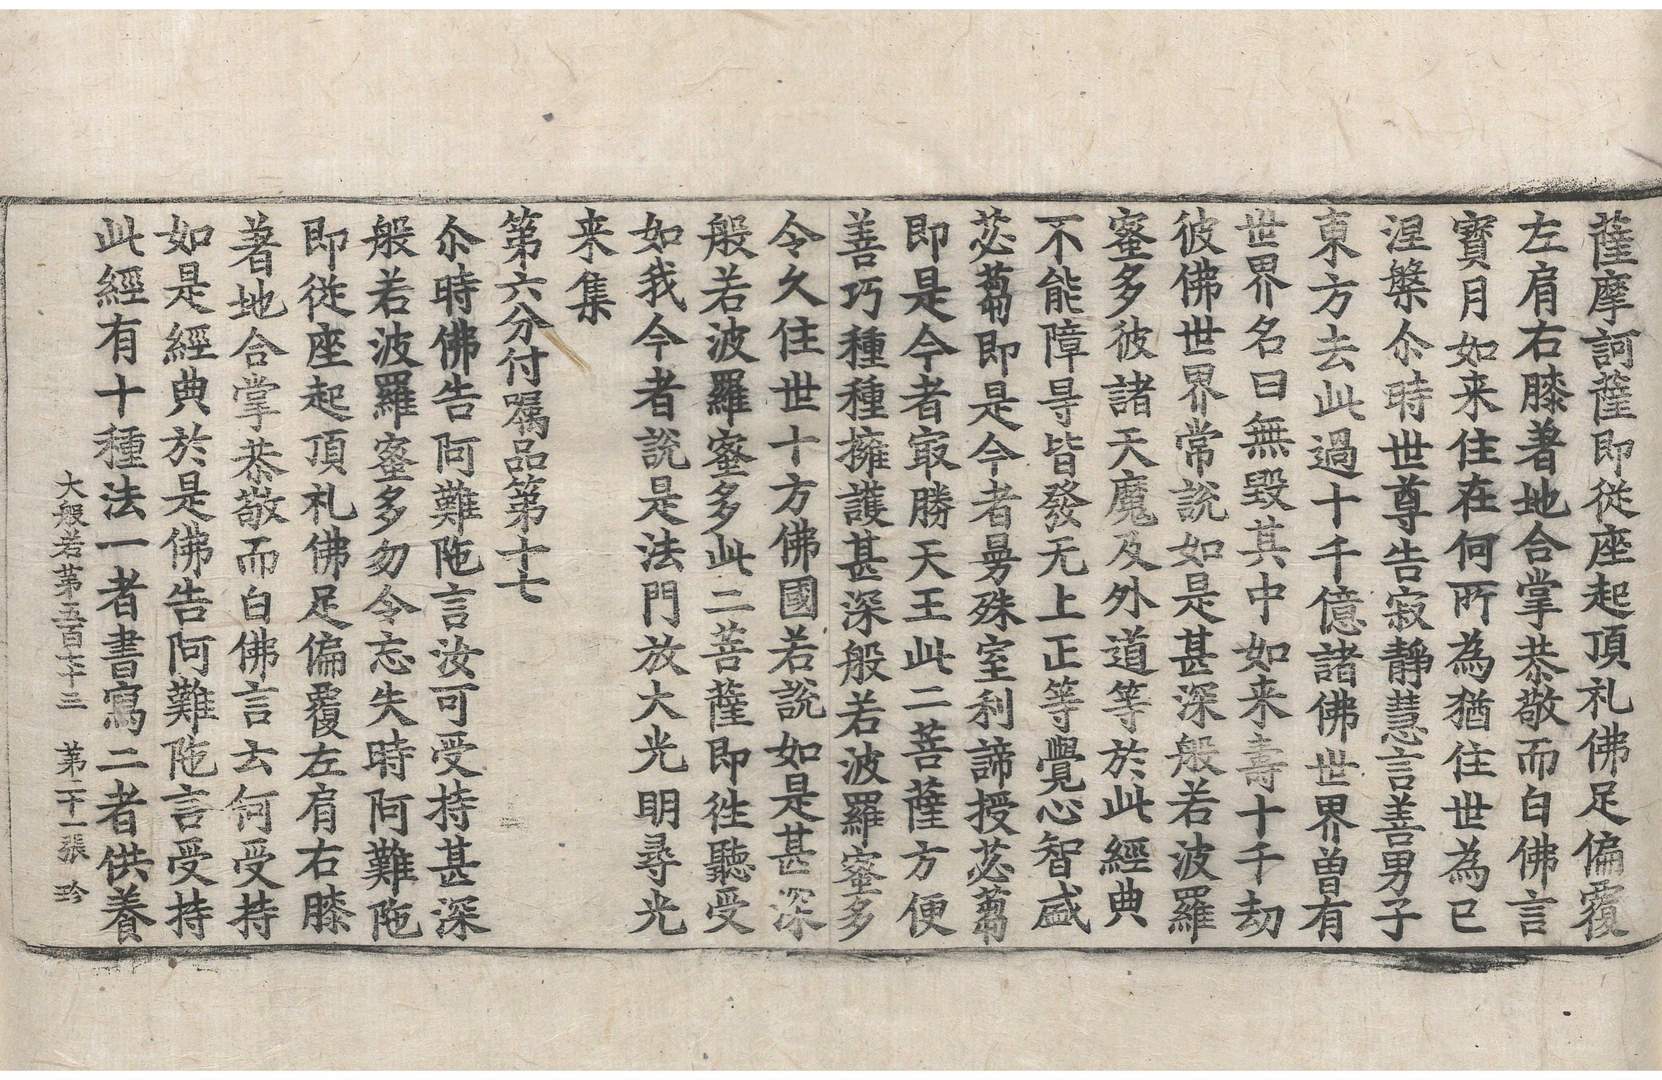 薩摩訶薩即從座起頂礼佛足偏覆
左肩右膝著地合掌恭敬而白佛言
寶月如来住在何所為猶住世為已
涅槃尒時世尊告寂靜慧言善男子
東方去此過十千億諸佛世界曽有
世界名曰無毀其中如来壽十千劫
彼佛世界常說如是甚深般若波羅
蜜多彼諸天魔及外道等於此經典
不能障㝵皆發无上正等覺心智盛
苾蒭即是今者曼殊室利諦授苾蒭
即是今者寂勝天王此二菩薩方便
善巧種種擁護甚深般若波羅蜜多
令久住世十方佛國若說如是甚深
般若波羅蜜多此二菩薩即徃聽受
如我今者說是法門放大光明尋光
来集
第六分付囑品第十七
尒時佛告阿難陁言汝可受持甚深
般若波羅蜜多勿令忘失時阿難陁
即從座起頂礼佛足偏覆左肩右膝
著地合掌恭敬而白佛言云何受持
如是經典於是佛告阿難陁言受持
此經有十種法一者書寫二者供養
大般若第五百七十三　第二十一張　珎